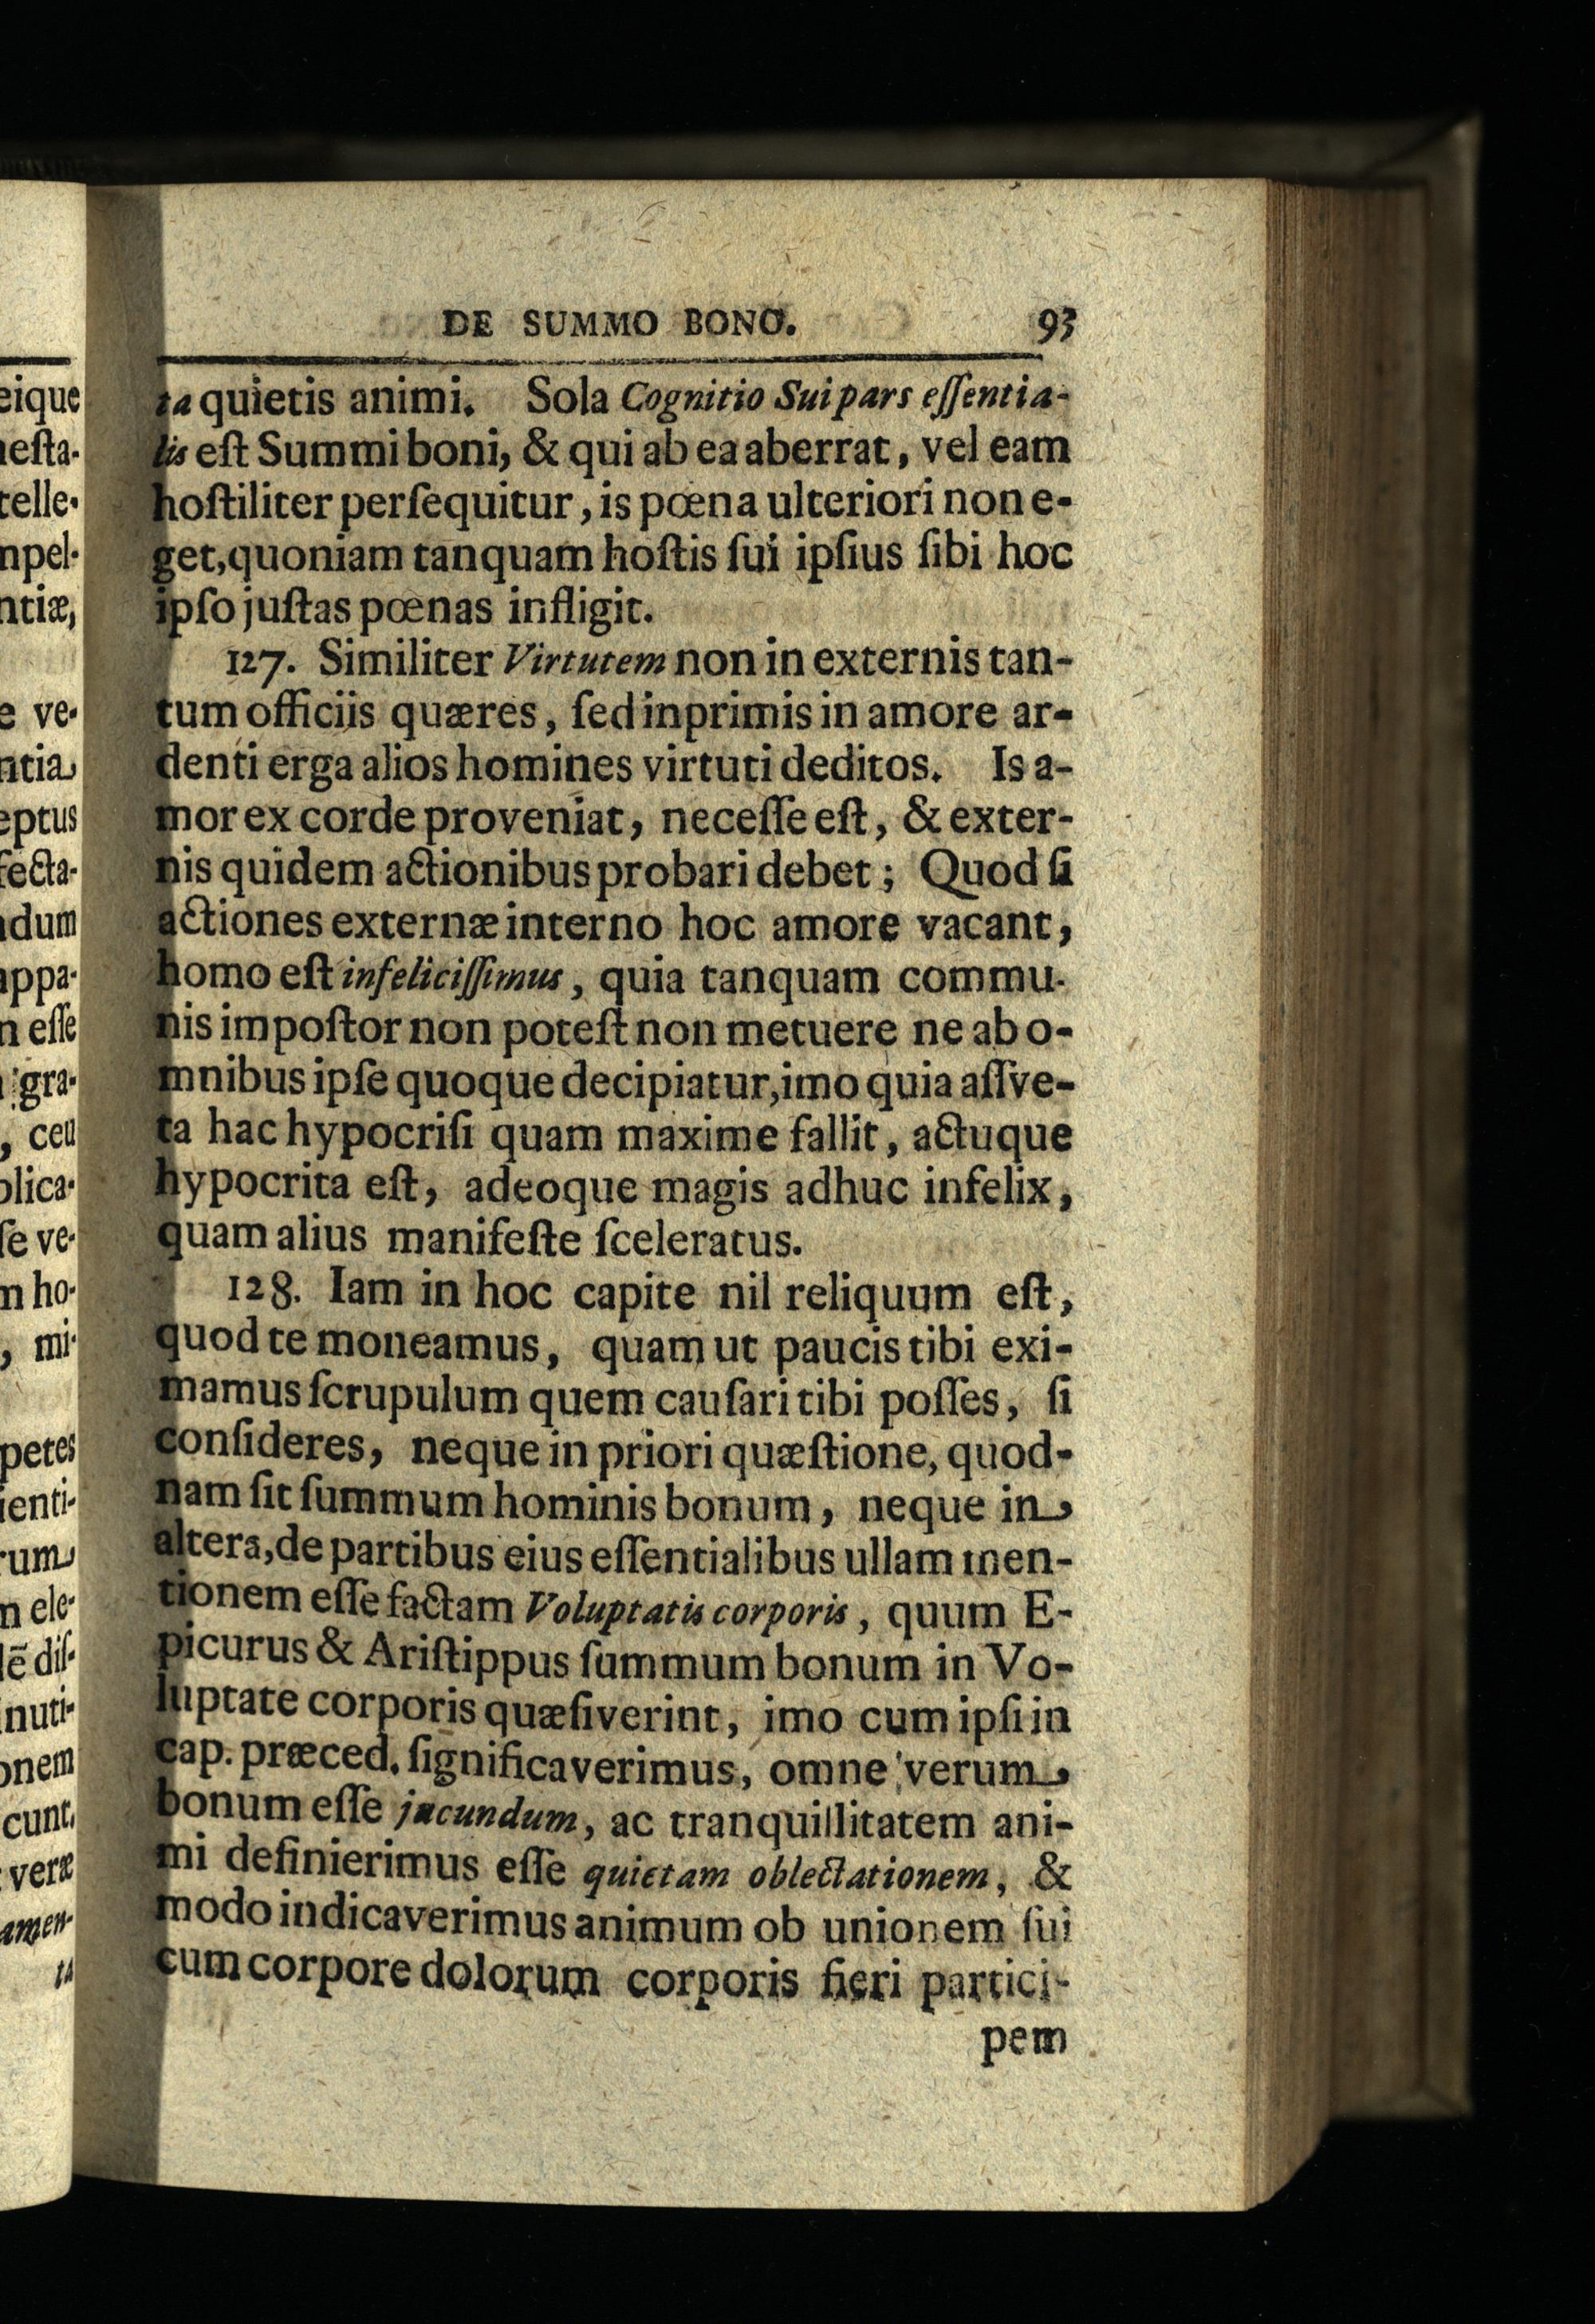 DE SUMMO BONO. 93
ta quietis animi. Sola Cognitio Sui pars eſſentia-
lis eſt Summi boni, & qui ab ea aberrat, vel eam
hoſtiliter perſequitur, is pœna ulteriori non e-
get, quoniam tanquam hoſtis ſui ipſius ſibi hoc
ipſo juſtas pœnas infligit.
127. Similiter Virtutem non in externis tan-
tum officiis quæres, ſed inprimis in amore ar-
denti erga alios homines virtuti deditos. Is a-
mor ex corde proveniat, neceſſe eſt, & exter-
nis quidem actionibus probari debet; Quod ſi
actiones externæ interno hoc amore vacant,
homo eſt infeliciſſimus, quia tanquam commu-
nis impoſtor non poteſt non metuere ne ab o-
mnibus ipſe quoque decipiatur, imo quia aſſve-
ta hac hypocriſi quam maxime fallit, actuque
hypocrita eſt, adeoque magis adhuc infelix,
quam alius manifeſte ſceleratus.
128. Iam in hoc capite nil reliquum eſt,
quod te moneamus, quam ut paucis tibi exi-
mamus ſcrupulum quem cauſari tibi poſſes, ſi
conſideres, neque in priori quæſtione, quod-
nam ſit ſummum hominis bonum, neque in
altera, de partibus eius eſſentialibus ullam men-
tionem eſſe factam Voluptatis corporis, quum E-
picurus & Ariſtippus ſummum bonum in Vo-
luptate corporis quæſiverint, imo cum ipſi in
cap. præced. ſignificaverimus, omne verum
bonum eſſe jucundum, ac tranquillitatem ani-
mi definierimus eſſe quietam oblectationem, &
modo indicaverimus animum ob unionem ſui
cum corpore dolorum corporis fieri partici-
pem